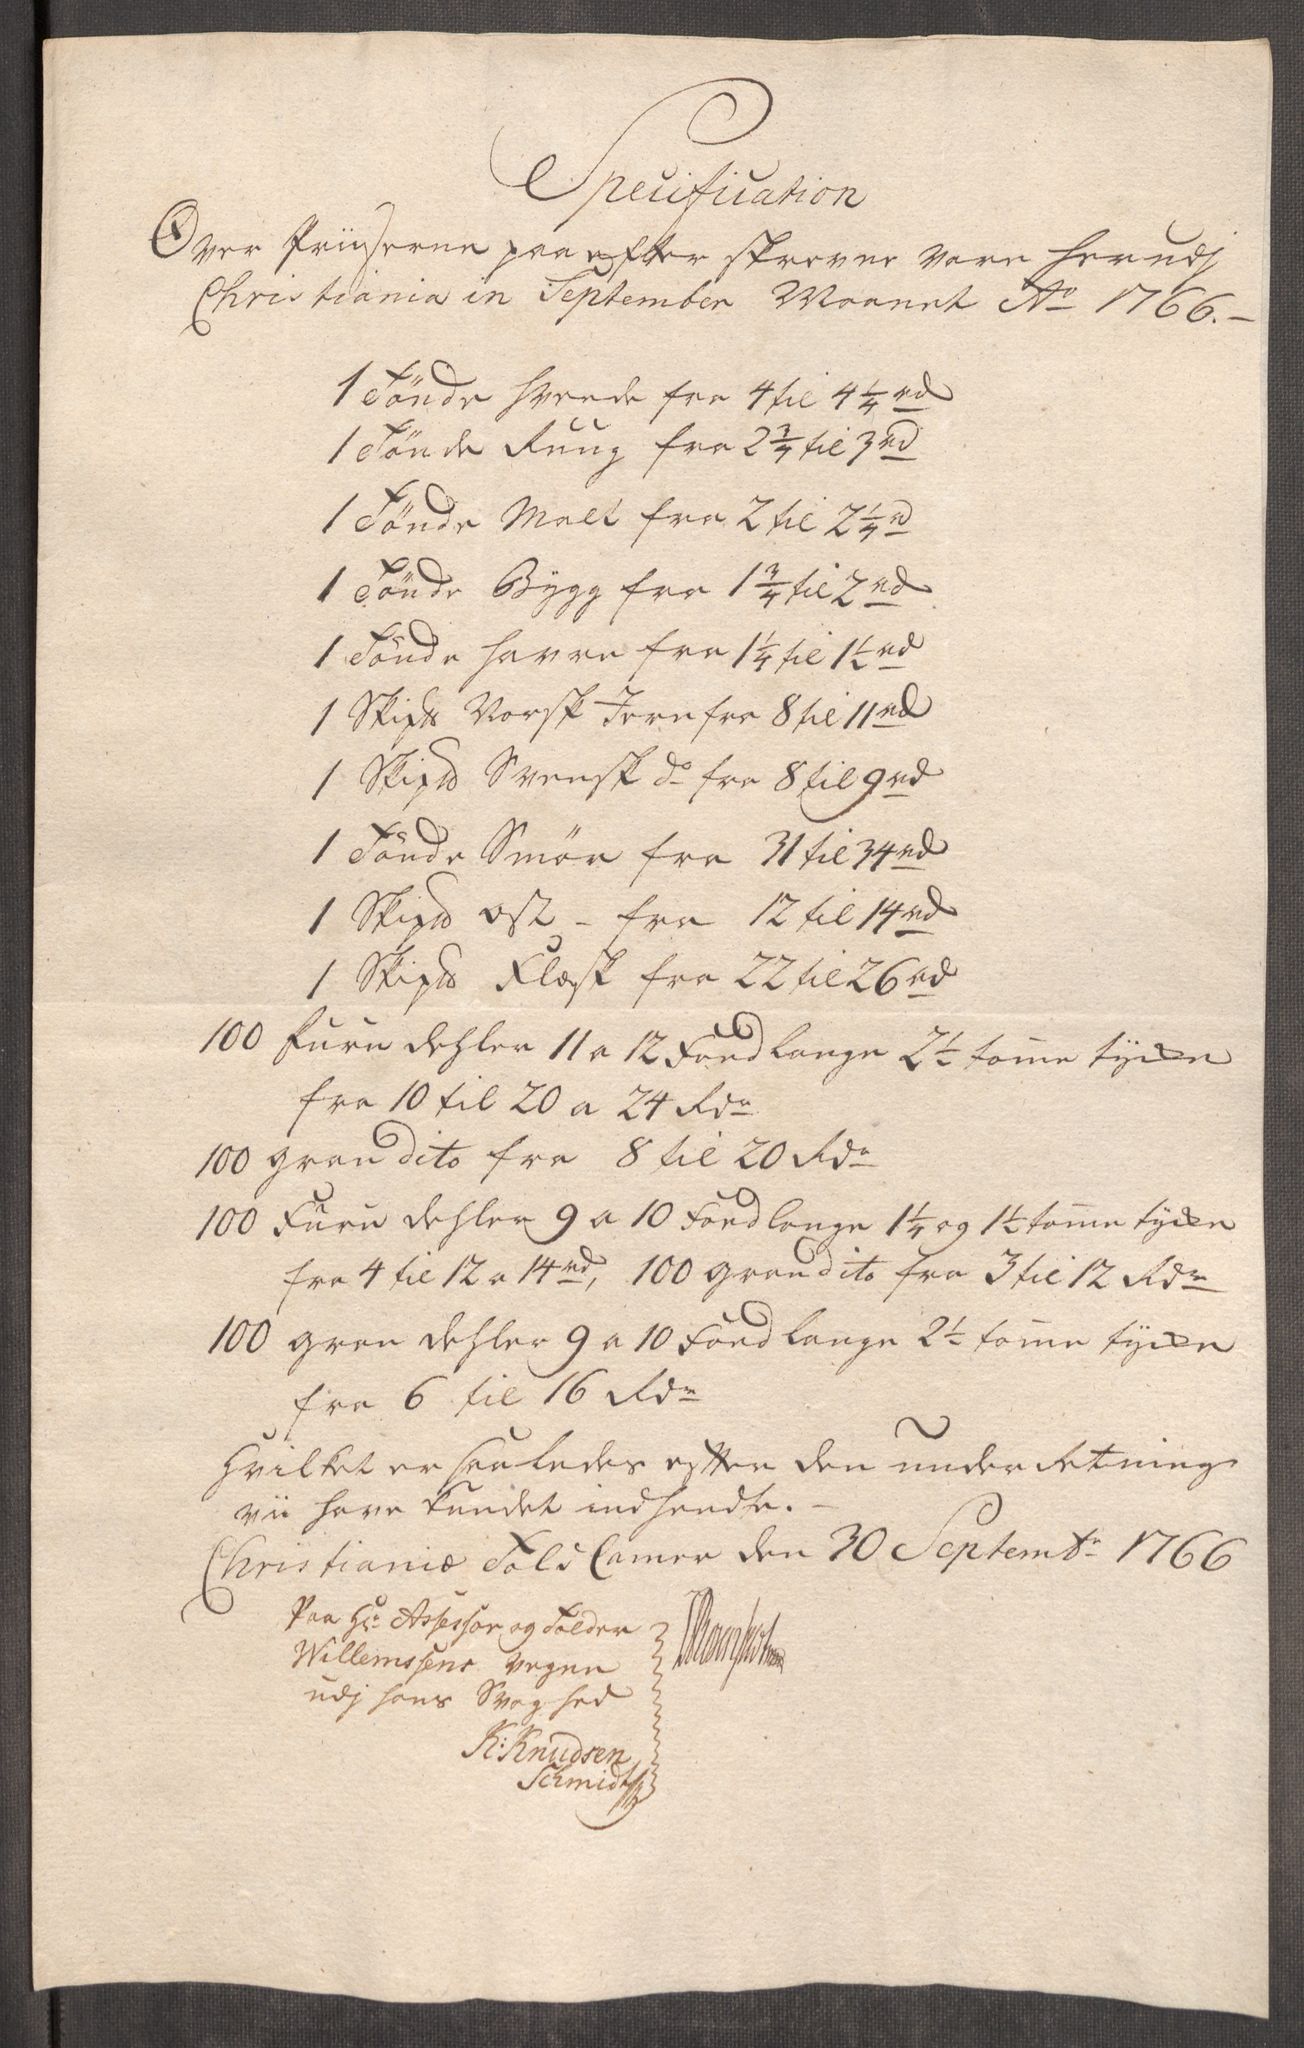 Specification
Over Priiserne paa efter skrevne vare her udj
Christiania in September Maanet Ao 1766.-
1 Tönde hvede fra 4 til 4 1/4 rd
1 Tönde Ruug fra 2 3/4 til 3 rd
1 Tönde Malt fra 2 til 2 1/4 rd
1 Tönde Bÿgg fra 1 3/4 til 2 rd
1 Tönde havre fra 1 1/4 til 1 1/2 rd
1 Skipd Norsk Jern fra 8 til 11 rd
1 Skipd Svensk do fra 8 til 9 rd
1 Tönde Smör fra 31 til 34 rd
1 Skipd ost - fra 12 til 14 rd
1 Skipd Flesk fra 22 til 26 rd
100 furu dehler 11 a 12 Foed lange 2 1/2 tome tÿcke
fra 10 til 20 a 24 Rdr
100 gran dito fra 8 til 20 Rdr
100 Furu dehler 9 a 10 Foed lange 1 1/4 og 1 1/2 tome tÿcke
fra 4 til 12 a 14 rd, 100 gran dito fra 3 til 12 Rdr
100 gran dehler 9 a 10 Foed lange 2 1/2 tome tÿcke
fra 6 til 16 Rdr
Hvilket er saaledes efter den underRetning
vii have kundet indhendte. -
Christianiæ Told Camer den 30 Septembr 1766
Paa Hr Assessor og Tolder
Willemssens vegne
udj hans Svaghed
K: Knudsen
Schmidt